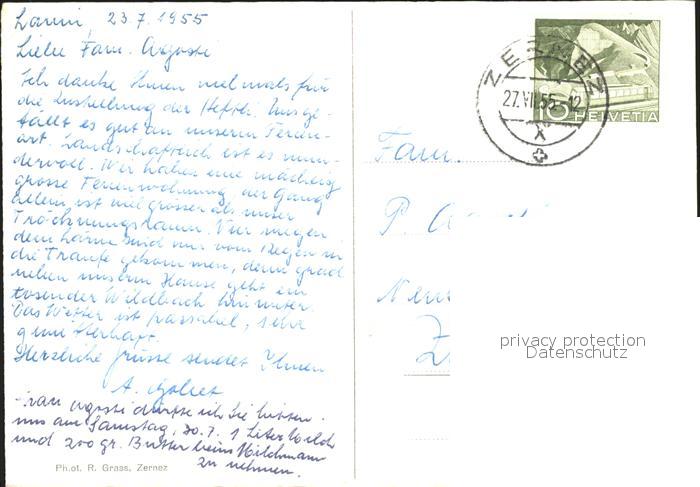 Lavin, 23.7.1955
Liebe Fam. Agosti
Ich danke Ihnen vielmals für
die Zustellung der Heftli. Uns ge-
fällt es gut an unserm Ferien-
ort. Landschaftlich ist es wun-
dervoll. Wir haben eine mächtig
grosse Ferienwohnung der Gang
allein ist viel grösser als unser
Tröchnungsraum. Nur wegen
dem Lärm sind wir vom Regen in
die Traufe gekommen, denn grad
neben unserm Hause geht ein
tosender Wildbach hinunter.
Das Wetter ist passabel, sehr
gewitterhaft.
Herzliche Grüsse sendet Ihnen
A.
Frau Agosti dürfte ich Sie bitten
uns am Samstag, 30.7. 1 Liter Milch
und 200 gr. Butter beim Milchmann
zu nehmen.
Phot. R. Grass, Zernez
ZERNEZ
27.VII.55-12
X
10 HELVETIA
Fam.
P. A
Z
privacy protection
Datenschutz